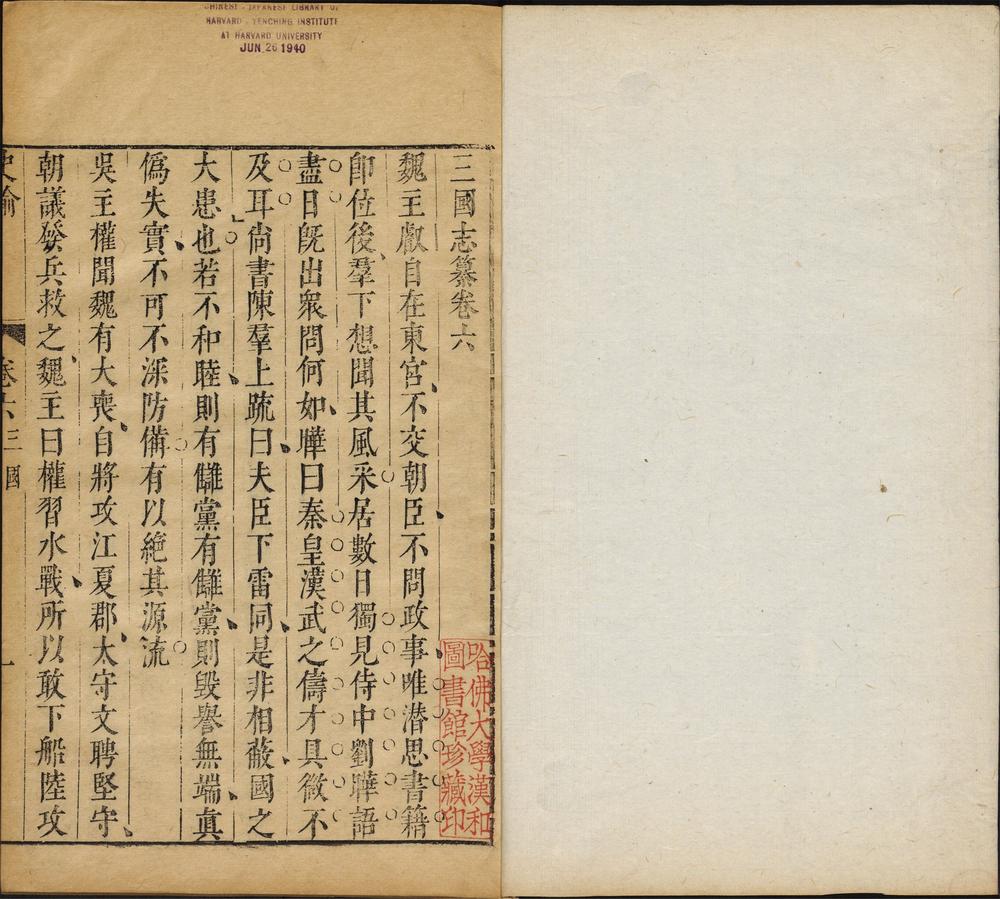 CHINESE - JAPANESE LIBRARY OF
HARVARD - YENCHING INSTITUTE
AT HARVARD UNIVERSITY
JUN 26 1940
三國志纂卷六
魏王叡自在東宮、不交朝臣、不問政事、唯潜思書籍
卽位後、羣下想聞其風采居數日獨見侍中劉曄語
盡日旣出衆問何如、曄曰秦皇漢武之儔才具㣲不
及耳尙書陳羣上疏曰、夫臣下雷同、是非相蔽、國之
大患也若不和睦、則有讎黨有讎黨、則毀譽無端、眞
僞失實、不可不深防備有以絕其源流
吳王權聞魏有大喪、自將攻江夏郡、太守文聘堅守、
朝議發兵救之、魏王曰權習水戰、所以敢下船陸攻
史論
卷六
三國
一
哈佛大學漢和
圖書館珍藏印